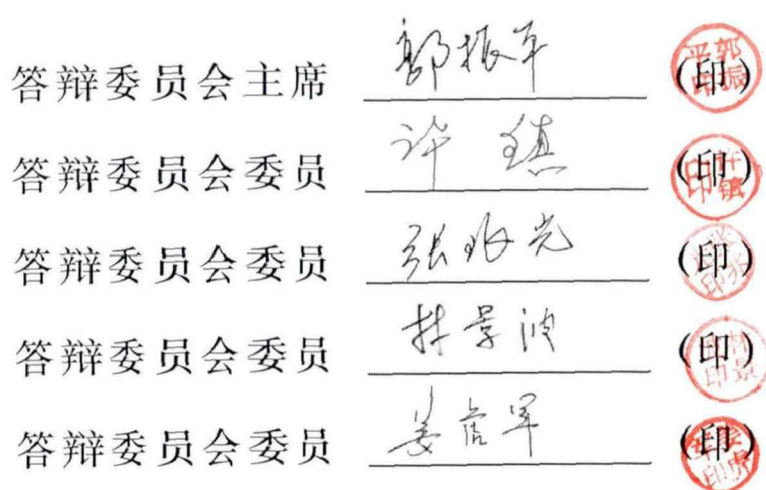 答辩委员会主席 郭振平 (印)
答辩委员会委员 许镇 (印)
答辩委员会委员 张兆光 (印)
答辩委员会委员 林景波 (印)
答辩委员会委员 (印)